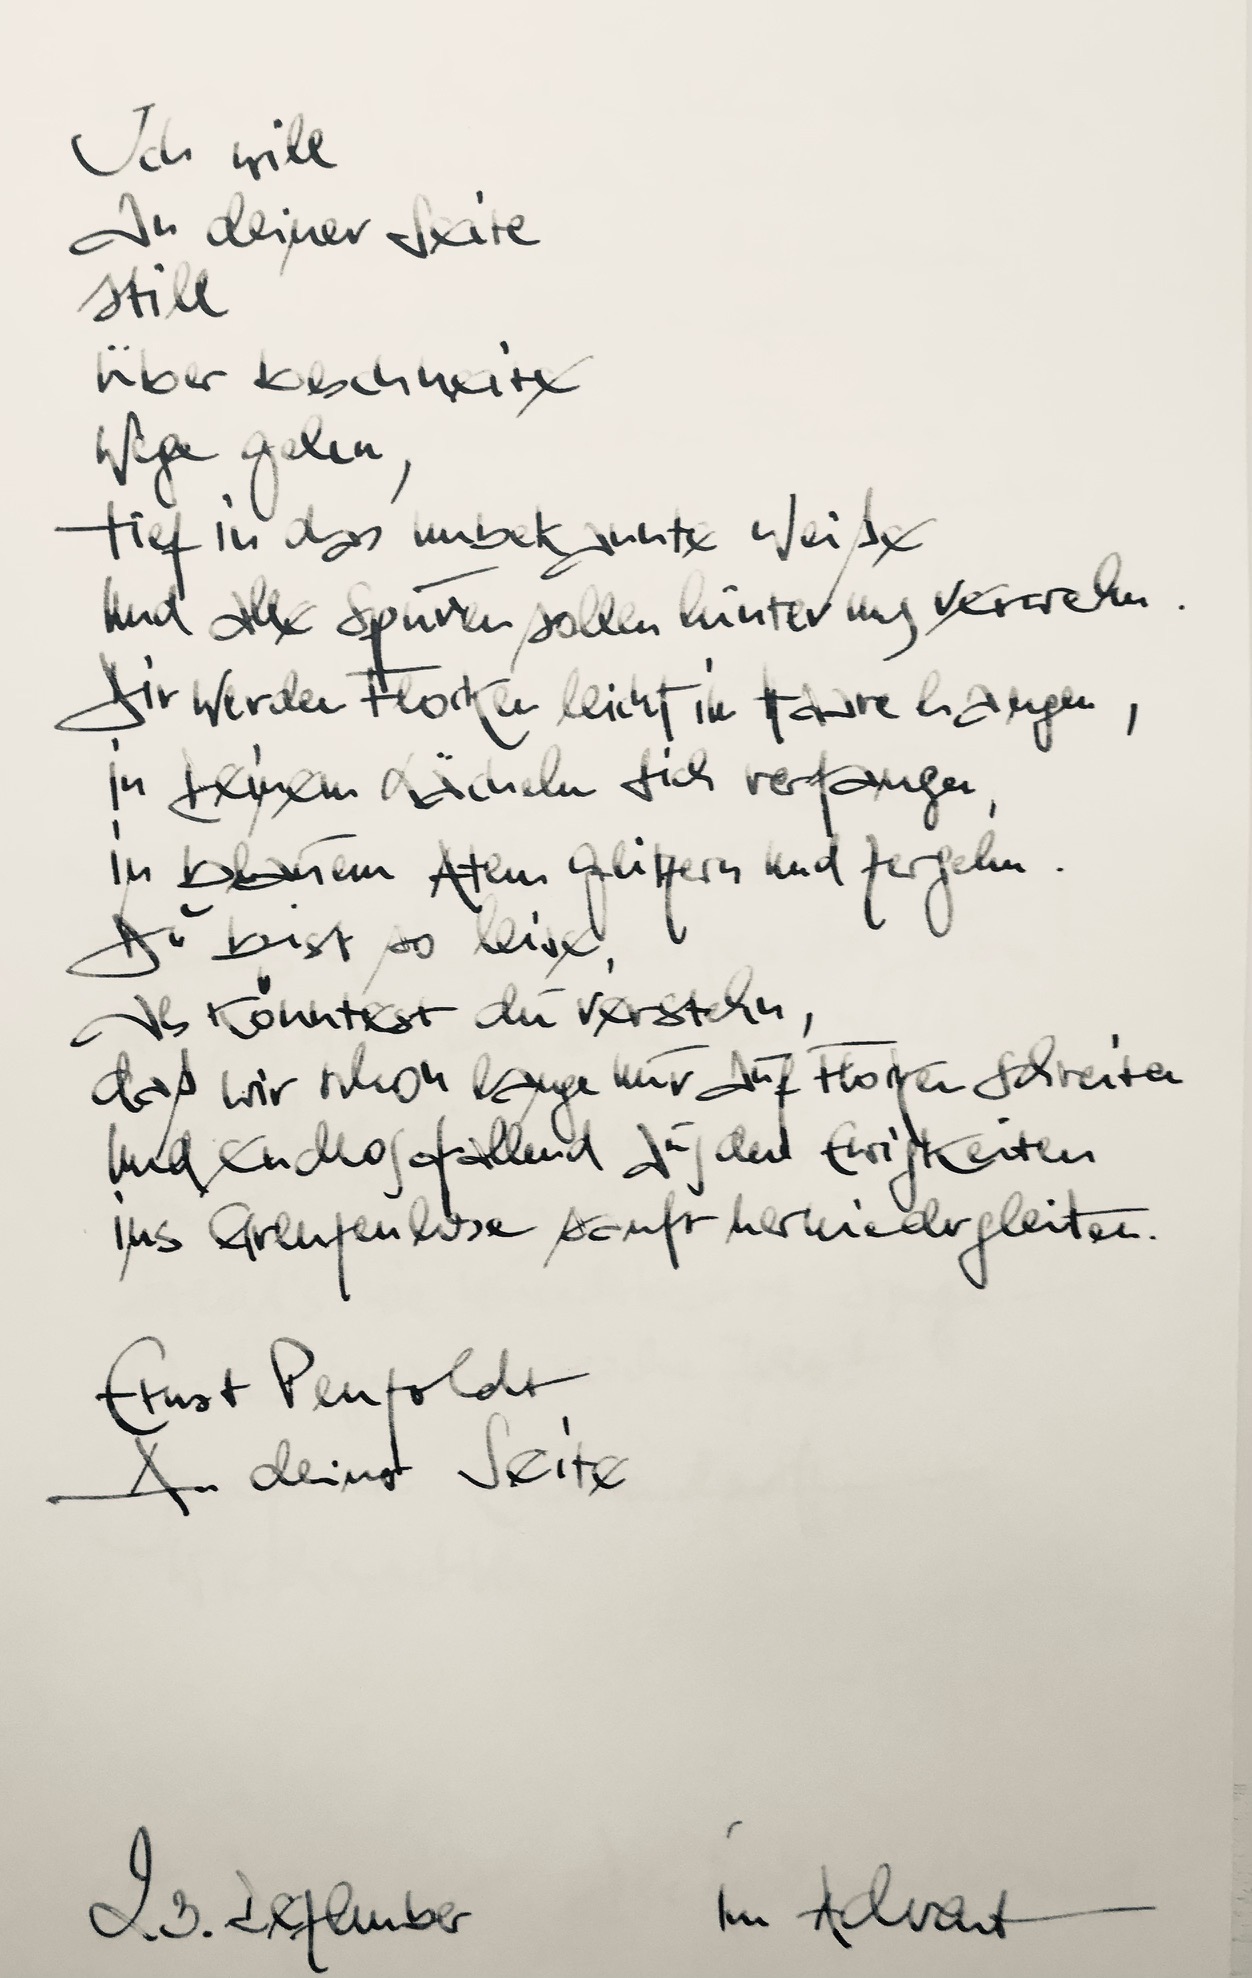 Ich will
An deiner Seite
still
über beschneite
Wege gehen,
tief in das unbekannte Weiße
und alle Spuren sollen hinter uns verwehn.
Dir werden Flocken leicht im Haare hangen,
in deinem Lächeln sich verfangen,
in blauem Atem glitzern und zergehn.
Du bist so leise,
Als könntest du verstehn,
daß wir schon lange nur auf Flocken schreiten
und endlos fallend aus den Ewigkeiten
ins Grenzenlose sanft herniedergleiten.
Ernst Penzoldt
An deiner Seite
23. Dezember im Advent